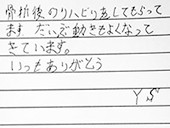 骨折後のリハビリをしてもらって
ます だいぶ動きもよくなって
きています。
いつもありがとう
Y S